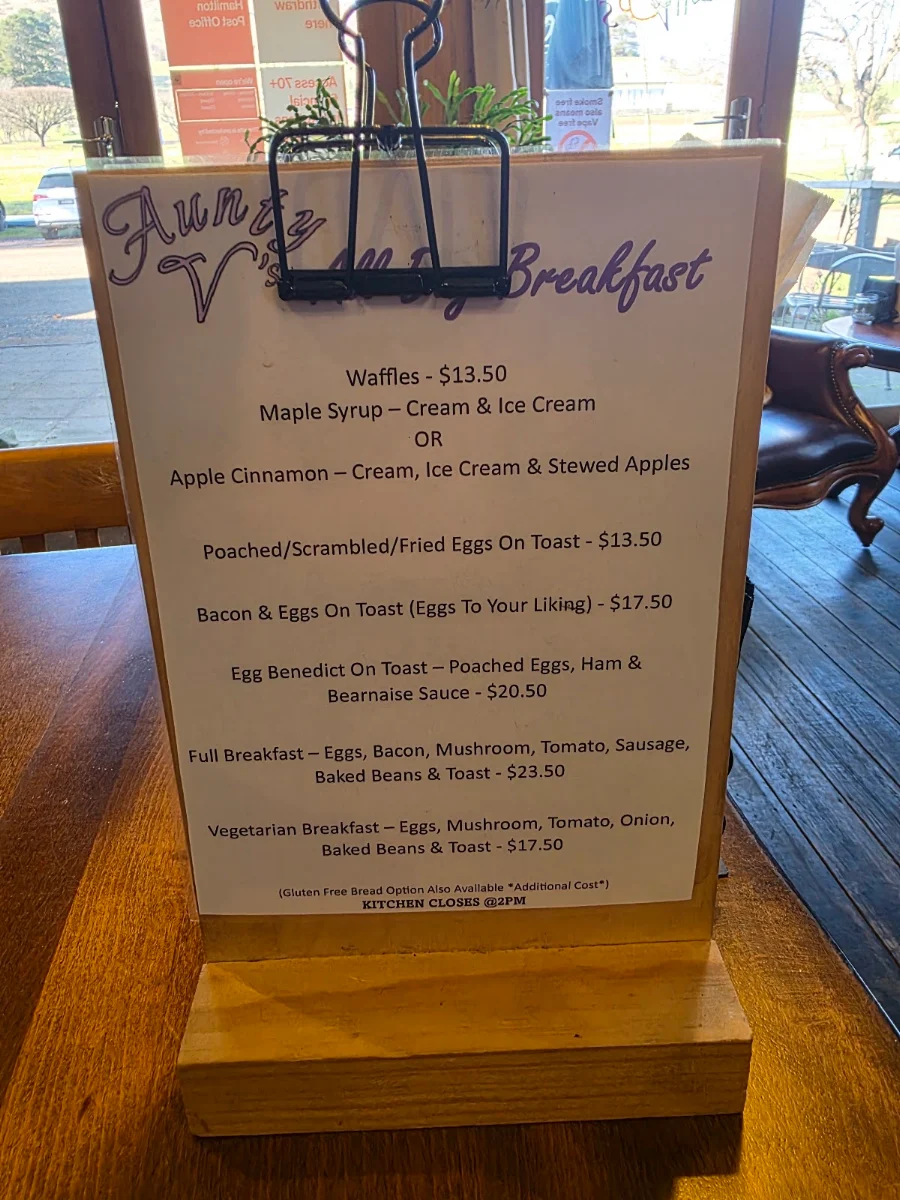 Hamilton
Post Office
withdraw
here
We're open
Access 70+
Smoke free
also means
Vape free
Aunty
V's All Day Breakfast
Waffles - $13.50
Maple Syrup – Cream & Ice Cream
OR
Apple Cinnamon – Cream, Ice Cream & Stewed Apples
Poached/Scrambled/Fried Eggs On Toast - $13.50
Bacon & Eggs On Toast (Eggs To Your Liking) - $17.50
Egg Benedict On Toast – Poached Eggs, Ham &
Bearnaise Sauce - $20.50
Full Breakfast – Eggs, Bacon, Mushroom, Tomato, Sausage,
Baked Beans & Toast - $23.50
Vegetarian Breakfast – Eggs, Mushroom, Tomato, Onion,
Baked Beans & Toast - $17.50
(Gluten Free Bread Option Also Available *Additional Cost*)
KITCHEN CLOSES @2PM